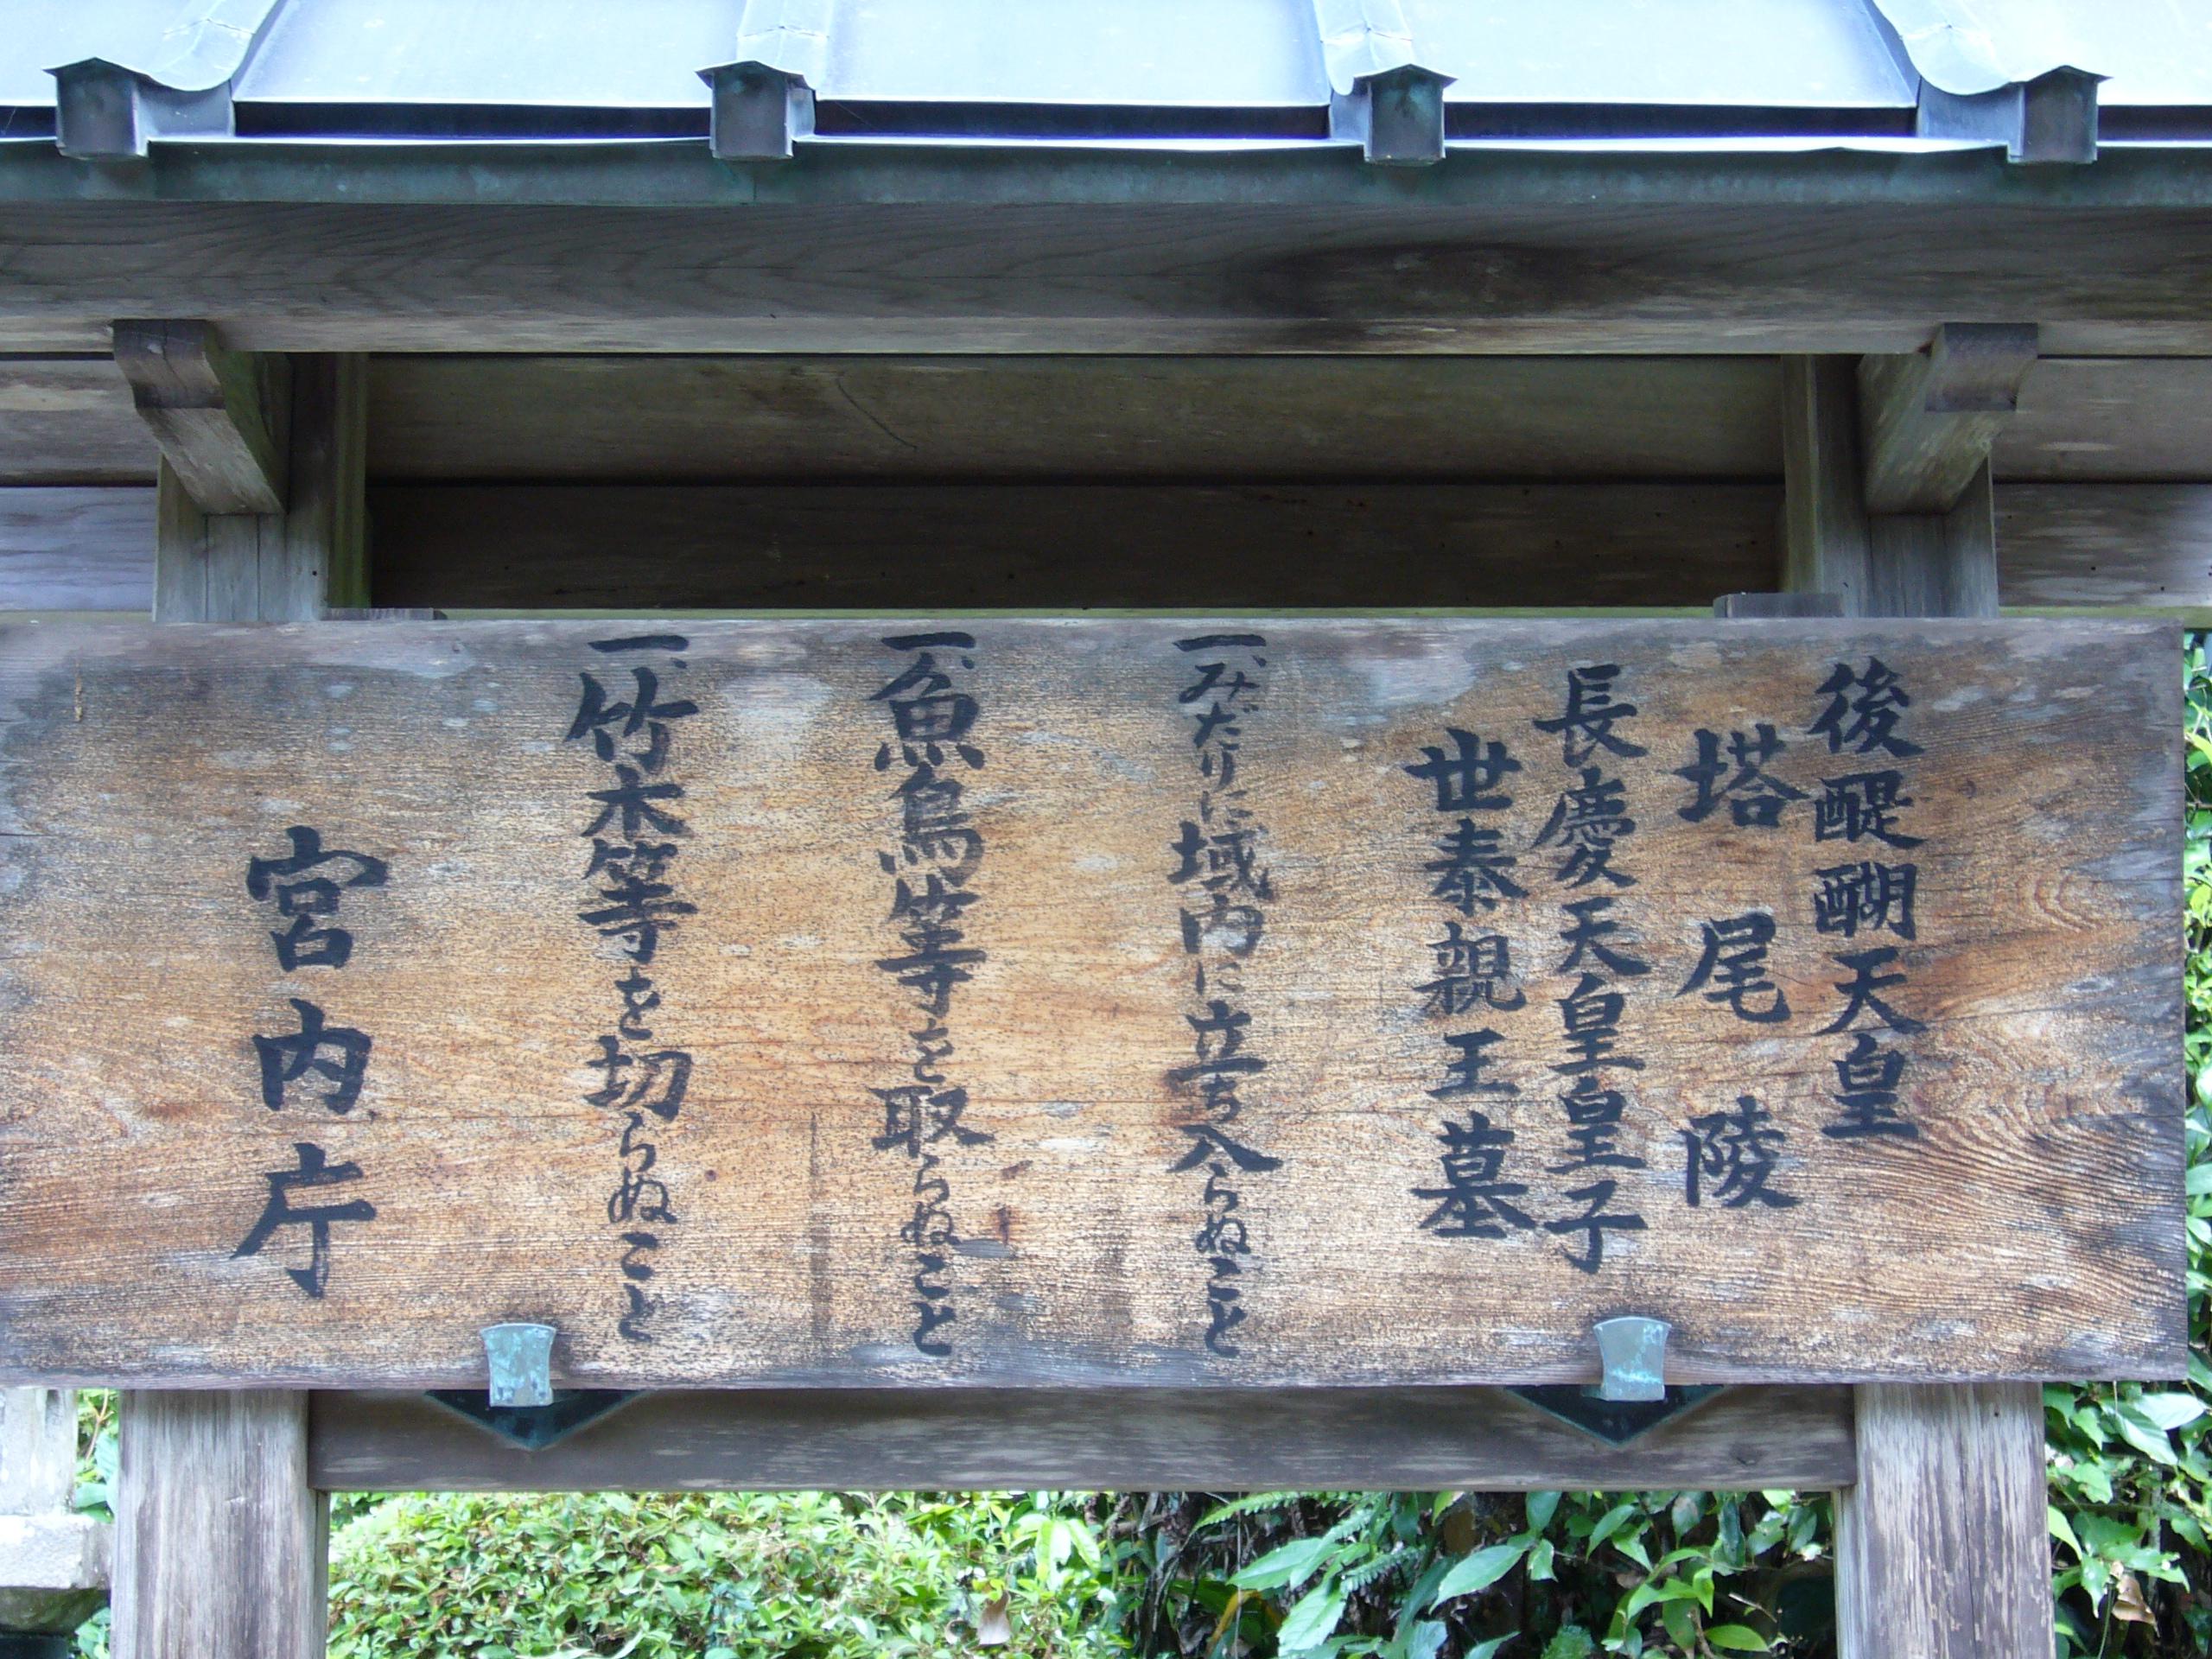 後醍醐天皇
塔尾陵
長慶天皇皇子
世泰親王墓
一、みだりに域内に立ち入らぬこと
一、魚鳥等を取らぬこと
一、竹木等を切らぬこと
宮内庁